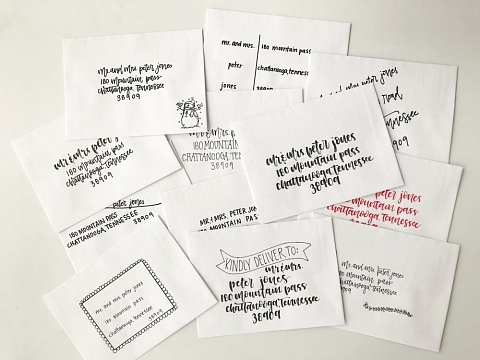 mr. and mrs. peter jones
180 mountain pass
chattanooga, tennessee
38909
mr. and mrs. 180 mountain pass
peter chattanooga, tennessee
jones 38909
and mrs peter jones
road
tennessee
38909
mr & mrs peter
180 mountain pass
chattanooga, tennessee
38909
mr & mrs. peter
180 MOUNTAIN
CHATTANOOGA, TENN
mr & mrs peter jones
180 mountain pass
chattanooga, tennessee
38909
peter jones
mountain pass
tennessee
38909
peter jones
180 MOUNTAIN PASS
CHATTANOOGA, TENNESSEE
38909
MR & MRS. PETER JON
180 MOUNTAIN PAS
KINDLY DELIVER TO:
mr & mrs.
peter jones
180 mountain pass
chattanooga, tennessee
38909
mr. and mrs. peter jones
180 mountain pass
chattanooga, tennessee
38909
mr. and mrs. peter jones
180 mountain pass
chattanooga, tennessee
38909